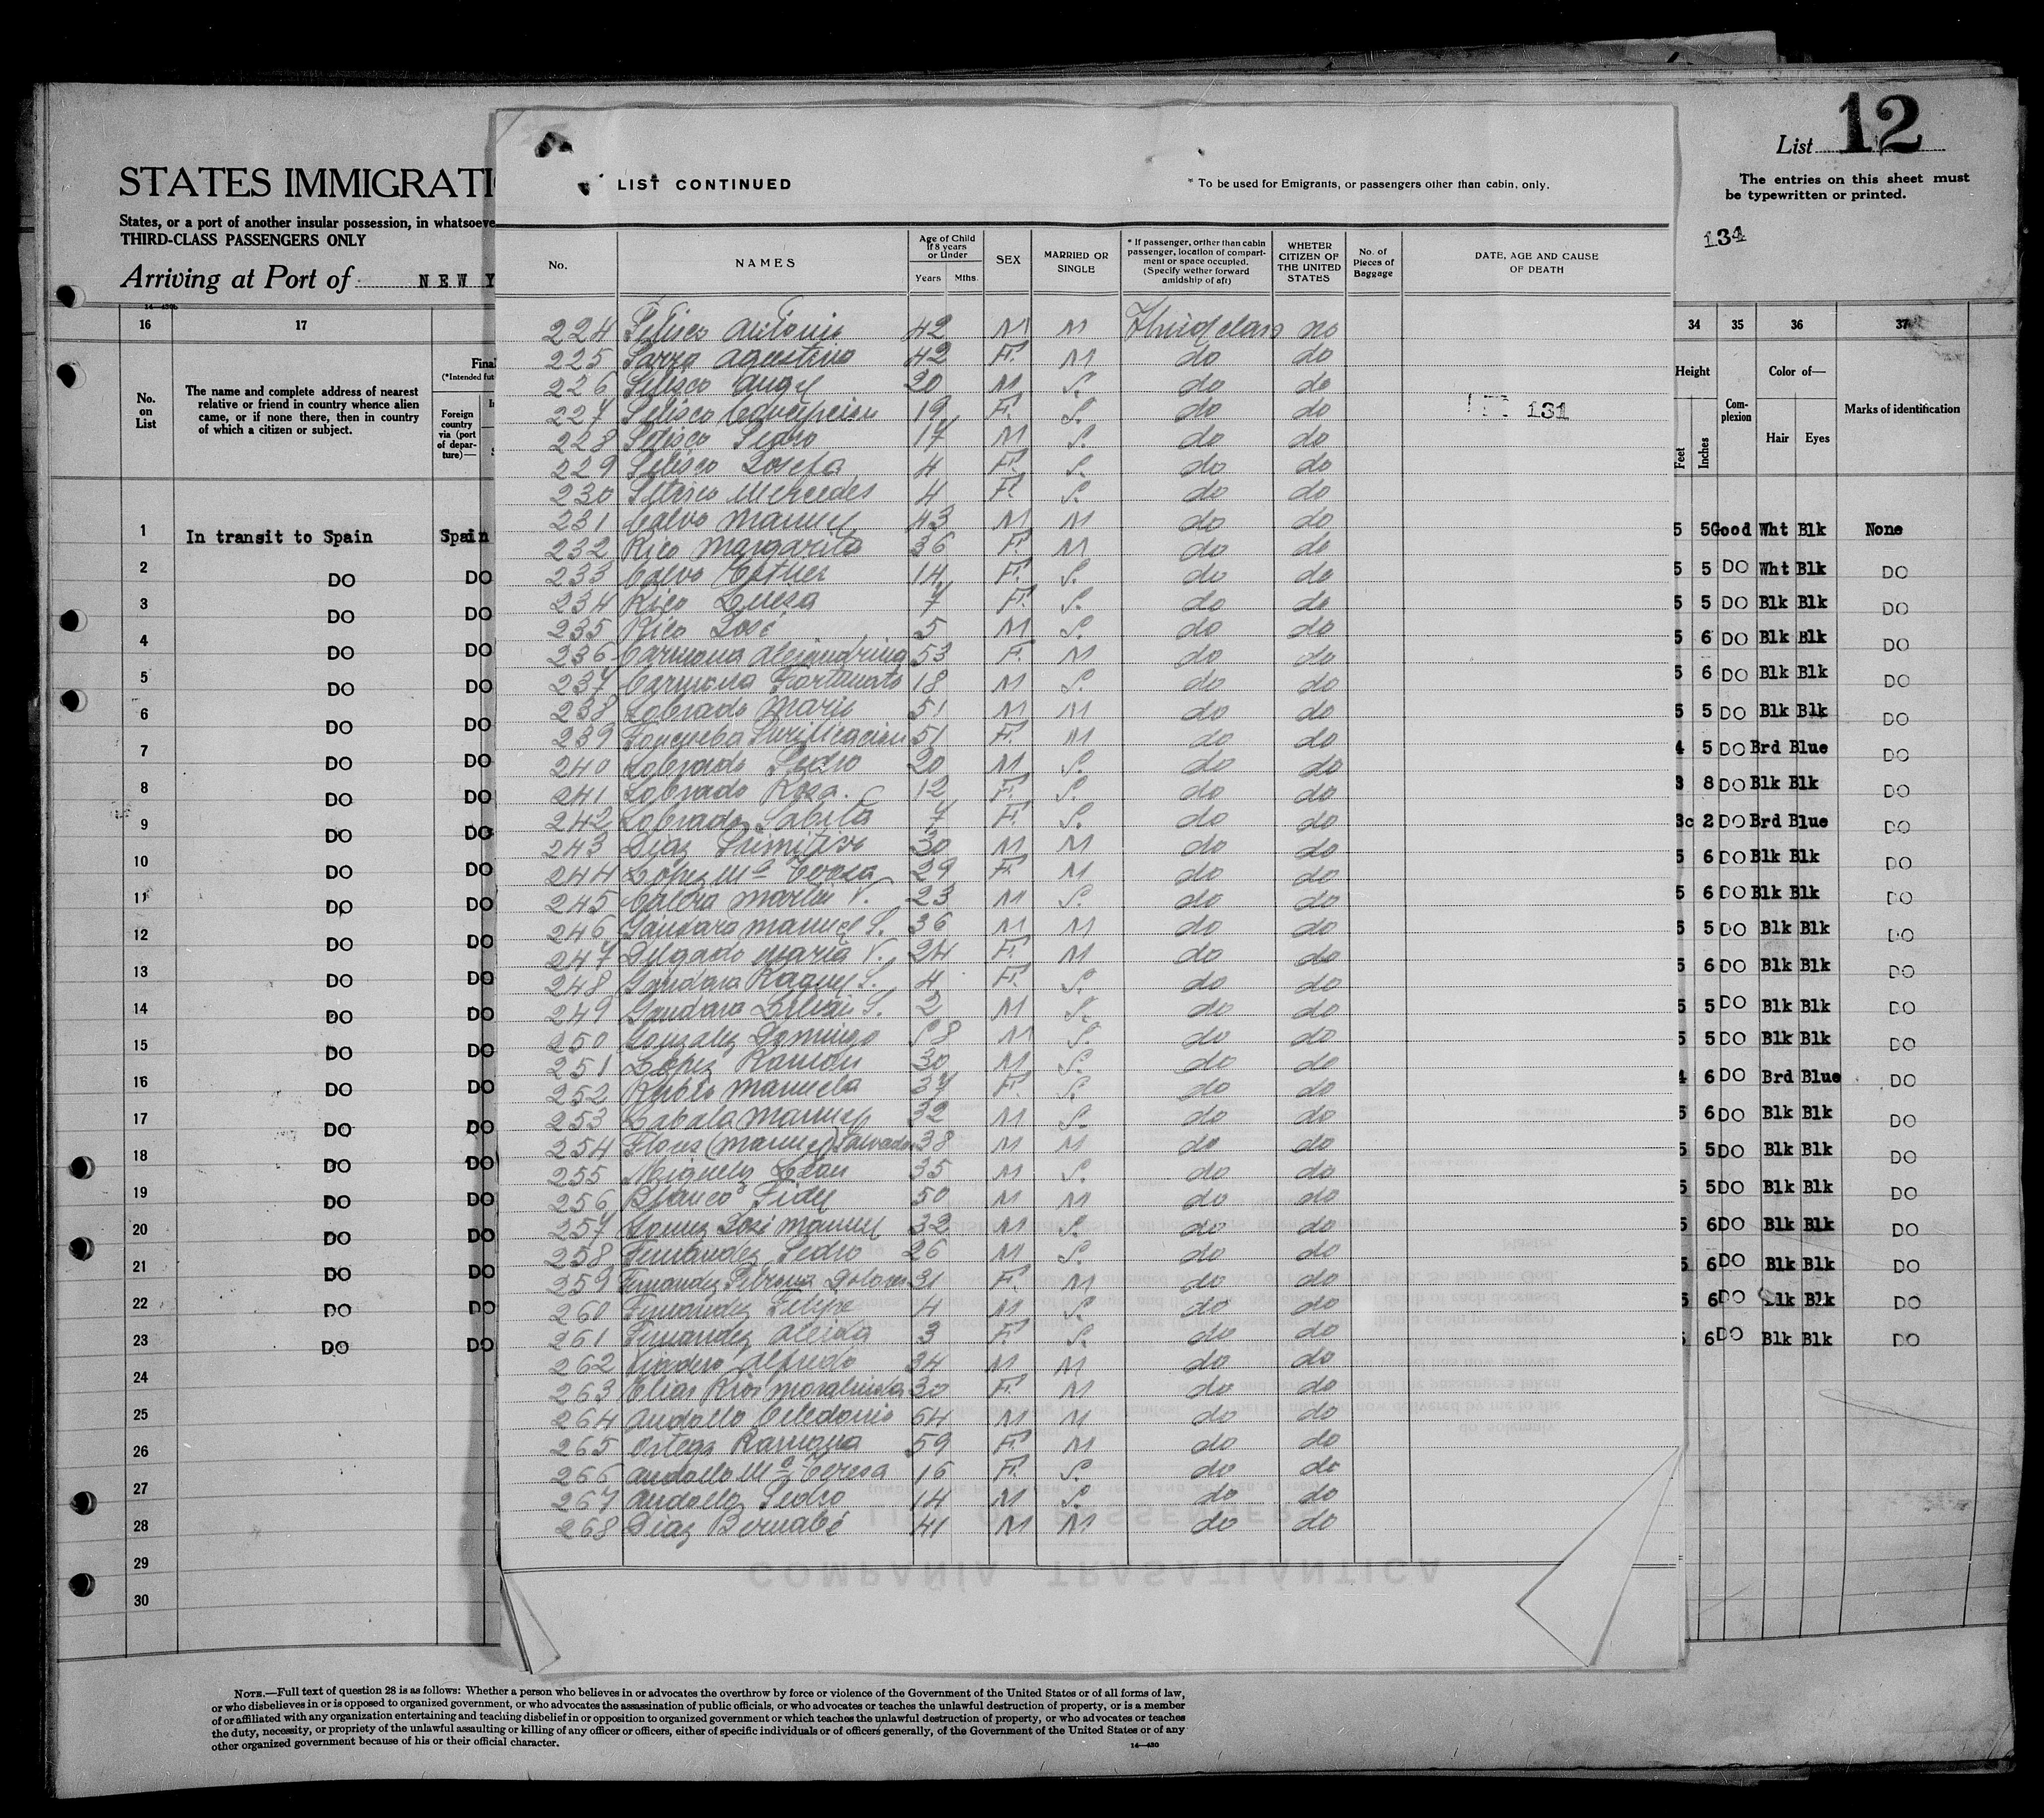 List 12
The entries on this sheet must
be typewritten or printed.
134
STATES IMMIGRATI
States, or a port of another insular possession, in whatsoeve
THIRD-CLASS PASSENGERS ONLY
Arriving at Port of NEW Y
LIST CONTINUED
* To be used for Emigrants, or passengers other than cabin, only.
No. NAMES Age of Child If 8 years or Under Years Mths. SEX MARRIED OR SINGLE * If passenger, orther than cabin passenger, location of compartment or space occupied. (Specify wether forward amidship of aft) WHETER CITIZEN OF THE UNITED STATES No. of Pieces of Baggage DATE, AGE AND CAUSE OF DEATH
224 Antonio 42 M M Third class no
225 42 F. M do do
226 Angel 20 M S. do do
227 Concepcion 19 F. S. do do
131
228 Pedro 17 M S. do do
229 Josefa 4 F. S. do do
230 Mercedes 4 F. S. do do
231 Calvo Manuel 43 M M do do
232 Rico Margarita 36 F. M do do
233 Calvo Esther 14 F. S. do do
234 Rico Luisa 7 F. S. do do
235 Rico José 5 M S. do do
236 Carmona Alejandrina 53 F. M do do
237 Carmona Fortunato 18 M S. do do
238 Lobrado Mario 51 M M do do
239 Purificacion 51 F. M do do
240 Lobrado Pedro 20 M S. do do
241 Lobrado Rosa. 12 F. S. do do
242 Lobrado 7 F. S. do do
243 Diaz Primitivo 30 M M do do
244 López Mª Teresa 29 F. M do do
245 Martin V. 23 M S. do do
246 Gandara Manuel S. 36 M M do do
247 Delgado Maria V. 24 F. M do do
248 Gandara Raquel S. 4 F. S. do do
249 Gandara S. 2 M S. do do
250 Gonzalez Domingo 58 M S. do do
251 López Ramón 30 M S. do do
252 Manuela 37 F. S. do do
253 Manuel 32 M S. do do
254 Flores (Manuel) Salvador 38 M M do do
255 35 M S. do do
256 Blanco Fidel 50 M M do do
257 José Manuel 32 M S. do do
258 Fernandez Pedro 26 M S. do do
259 Fernandez Dolores 31 F. M do do
260 Fernandez Felipe 4 M S. do do
261 Fernandez Aleida 3 F. S. do do
262 Alfredo 34 M M do do
263 Elias Rios 30 F. M do do
264 Celedonio 64 M M do do
265 Ortega Ramona 59 F. M do do
266 Mª Teresa 16 F. S. do do
267 Pedro 14 M S. do do
268 Diaz Bernabé 41 M M do do
COMPAÑÍA TRASATLÁNTICA
16 17
No. on List
The name and complete address of nearest
relative or friend in country whence alien
came, or if none there, then in country
of which a citizen or subject.
Final
(*Intended fut
Foreign
country
via (port
of depar-
ture)—
34 35 36 37
Height Feet Inches Com-plexion Color of— Hair Eyes Marks of identification
1 In transit to Spain Spain 5 5 Good Wht Blk None
2 DO DO 5 5 DO Wht Blk DO
3 DO DO 5 5 DO Blk Blk DO
4 DO DO 5 6 DO Blk Blk DO
5 DO DO 5 6 DO Blk Blk DO
6 DO DO 5 5 DO Blk Blk DO
7 DO DO 4 5 DO Brd Blue DO
8 DO DO 3 8 DO Blk Blk DO
9 DO DO 3c 2 DO Brd Blue DO
10 DO DO 5 6 DO Blk Blk DO
11 DO DO 5 6 DO Blk Blk DO
12 DO DO 5 5 DO Blk Blk DO
13 DO DO 5 6 DO Blk Blk DO
14 DO DO 5 5 DO Blk Blk DO
15 DO DO 5 5 DO Blk Blk DO
16 DO DO 4 6 DO Brd Blue DO
17 DO DO 5 6 DO Blk Blk DO
18 DO DO 5 5 DO Blk Blk DO
19 DO DO 5 5 DO Blk Blk DO
20 DO DO 5 6 DO Blk Blk DO
21 DO DO 5 6 DO Blk Blk DO
22 DO DO 5 6 DO Blk Blk DO
23 DO DO 5 6 DO Blk Blk DO
24
25
26
27
28
29
30
NOTE.—Full text of question 28 is as follows: Whether a person who believes in or advocates the overthrow by force or violence of the Government of the United States or of all forms of law,
or who disbelieves in or is opposed to organized government, or who advocates the assassination of public officials, or who advocates or teaches the unlawful destruction of property, or is a member
of or affiliated with any organization entertaining and teaching disbelief in or opposition to organized government or which teaches the unlawful destruction of property, or who advocates or teaches
the duty, necessity, or propriety of the unlawful assaulting or killing of any officer or officers, either of specific individuals or of officers generally, of the Government of the United States or of any
other organized government because of his or their official character.
14—430